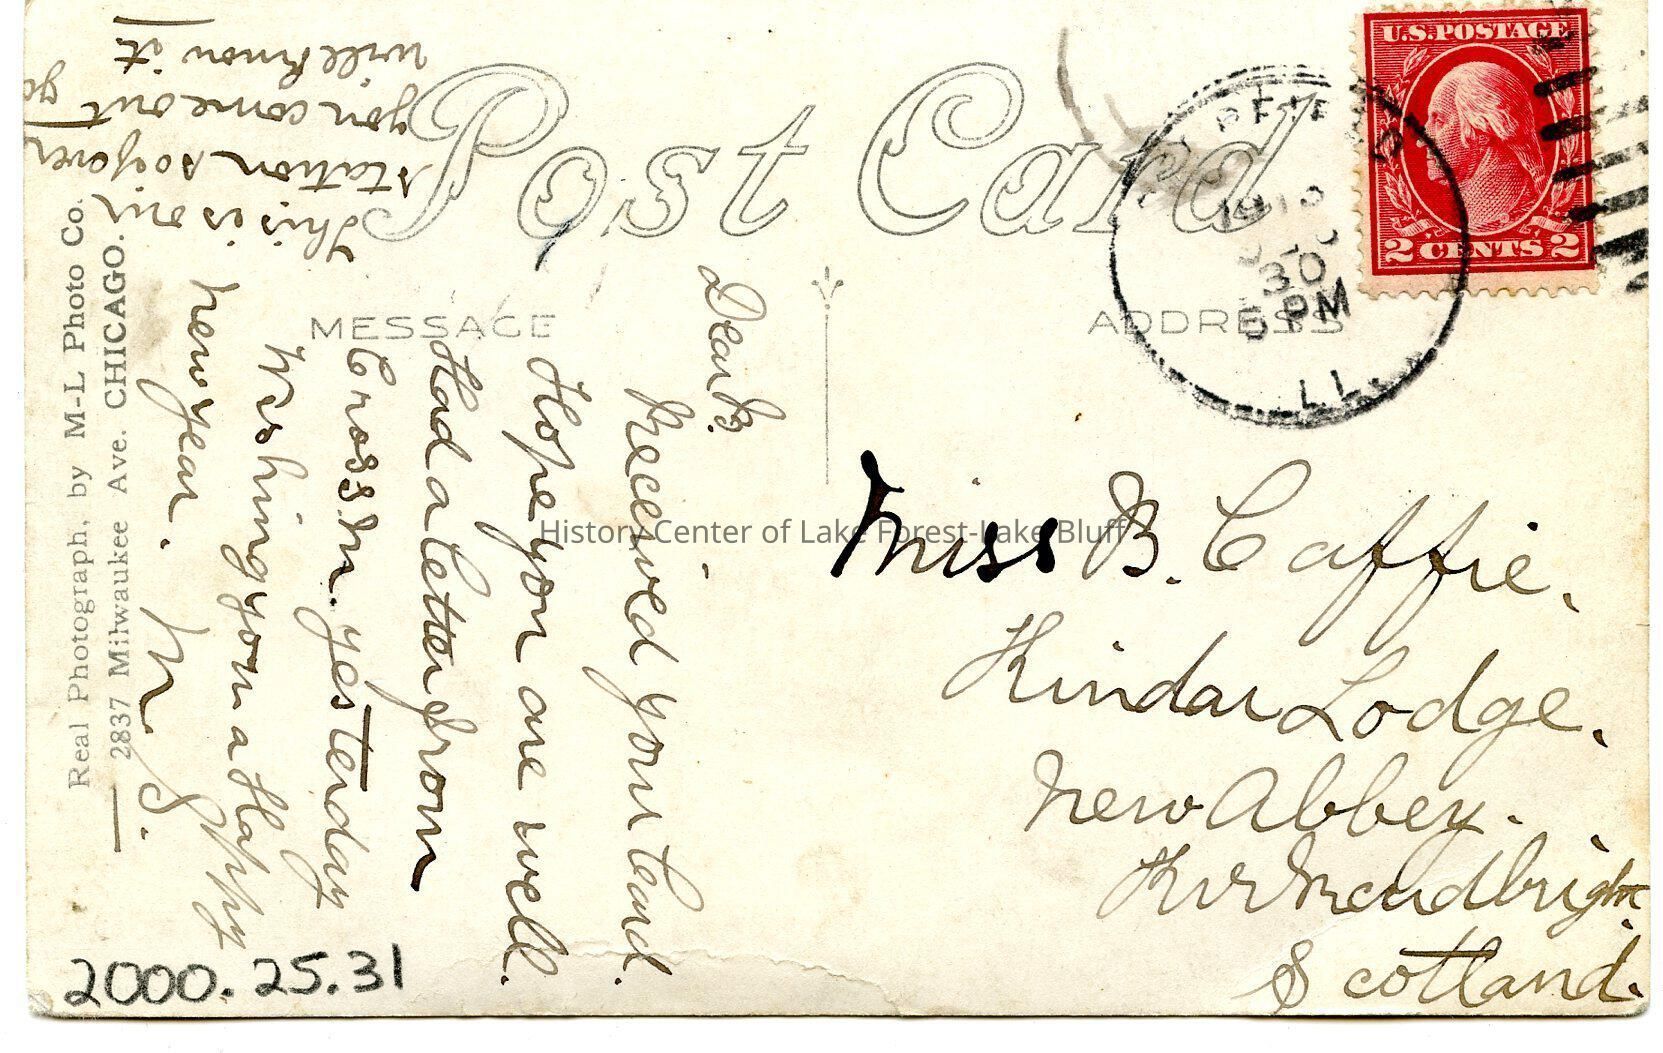 Post Card
U.S. POSTAGE
2 CENTS 2
30
5 PM
ILL.
MESSAGE
ADDRESS
This is our
station so if ever
you come out
will know it
Dear B.
Received your card.
Hope you are well.
Had a letter from
yesterday
Wishing you a Happy
new year.
Miss B. Caffie.
Kindar Lodge.
New Abbey.
Kirkcudbright.
Scotland.
Real Photograph, by M-L Photo Co.
2837 Milwaukee Ave. CHICAGO.
History Center of Lake Forest-Lake Bluff
2000.25.31